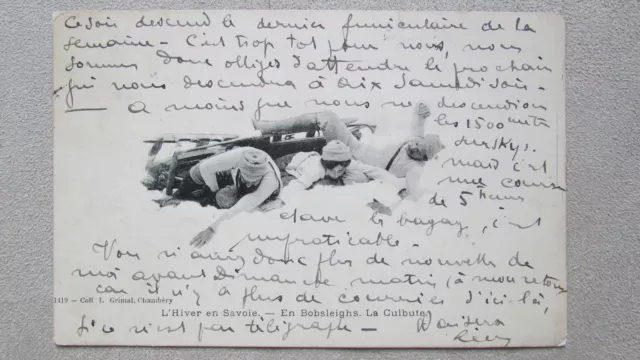 Ce soir descend le dernier funiculaire de la
semaine - C'est trop tot pour nous, nous
sommes donc obligés d'attendre le prochain
qui nous descendra à dix Samedi soir -
— a moins que nous ne descendions
les 1500 metr
sur skys.
mais c'est
une course
de 5 heures
et avec le bagage, c'est
impraticable -
Vous n'aurez donc plus de nouvelles de
moi avant Dimanche matin (à mon retour
car il n'y a plus de courrier d'ici là,
1419 - Coll. L. Grimal, Chambéry
L'Hiver en Savoie. - En Bobsleighs. La Culbute.
Si ce n'est par télégraphe -